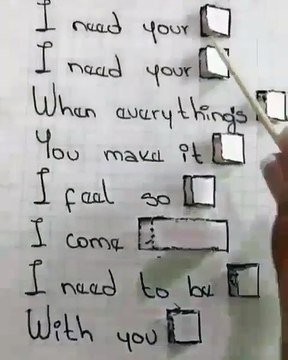 I need your
I need your
When everythings
You make it
I feel so
I come
I need to be
With you